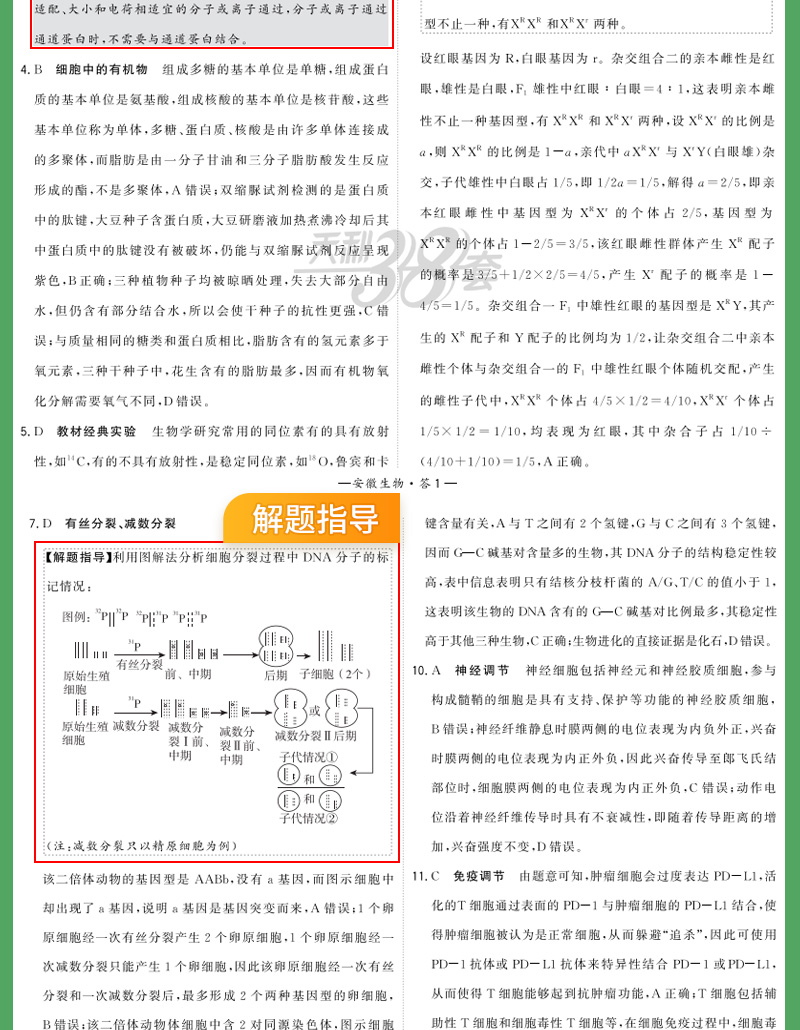 适配、大小和电荷相适宜的分子或离子通过,分子或离子通过
通道蛋白时,不需要与通道蛋白结合。
4. B 细胞中的有机物 组成多糖的基本单位是单糖,组成蛋白
质的基本单位是氨基酸,组成核酸的基本单位是核苷酸,这些
基本单位称为单体,多糖、蛋白质、核酸是由许多单体连接成
的多聚体,而脂肪是由一分子甘油和三分子脂肪酸发生反应
形成的酯,不是多聚体,A 错误;双缩脲试剂检测的是蛋白质
中的肽键,大豆种子含蛋白质,大豆研磨液加热煮沸冷却后其
中蛋白质中的肽键没有被破坏,仍能与双缩脲试剂反应呈现
紫色,B 正确;三种植物种子均被晾晒处理,失去大部分自由
水,但仍含有部分结合水,所以会使干种子的抗性更强,C 错
误;与质量相同的糖类和蛋白质相比,脂肪含有的氢元素多于
氧元素,三种干种子中,花生含有的脂肪最多,因而有机物氧
化分解需要氧气不同,D 错误。
5. D 教材经典实验 生物学研究常用的同位素有的具有放射
性,如¹⁴C,有的不具有放射性,是稳定同位素,如¹⁸O,鲁宾和卡
型不止一种,有XᴿXᴿ 和XᴿXʳ 两种。
设红眼基因为 R,白眼基因为 r。杂交组合二的亲本雌性是红
眼,雄性是白眼,F₁ 雄性中红眼∶白眼=4∶1,这表明亲本雌
性不止一种基因型,有 XᴿXᴿ 和 XᴿXʳ 两种,设 XᴿXʳ 的比例是
a,则 XᴿXᴿ 的比例是 1-a,亲代中 aXᴿXʳ 与 XʳY(白眼雄)杂
交,子代雄性中白眼占 1/5,即 1/2a=1/5,解得 a=2/5,即亲
本红眼雌性中基因型为 XᴿXʳ 的个体占 2/5,基因型为
XᴿXᴿ 的个体占 1-2/5=3/5,该红眼雌性群体产生 Xᴿ 配子
的概率是 3/5+1/2×2/5=4/5,产生 Xʳ 配子的概率是 1-
4/5=1/5。杂交组合一 F₁ 中雄性红眼的基因型是 XᴿY,其产
生的 Xᴿ 配子和 Y 配子的比例均为 1/2,让杂交组合二中亲本
雌性个体与杂交组合一的 F₁ 中雄性红眼个体随机交配,产生
的雌性子代中,XᴿXᴿ 个体占 4/5×1/2=4/10,XᴿXʳ 个体占
1/5×1/2=1/10,均表现为红眼,其中杂合子占 1/10÷
(4/10+1/10)=1/5,A 正确。
天利38套
—安徽生物·答1—
解题指导
7. D 有丝分裂、减数分裂
【解题指导】利用图解法分析细胞分裂过程中 DNA 分子的标
记情况:
图例: ³²P ³²P ³²P ³¹P ³¹P ³¹P
³¹P
有丝分裂
原始生殖
细胞
前、中期
后期
子细胞(2个)
³¹P
原始生殖
细胞
减数分裂
减数分
裂Ⅰ前、
中期
减数分
裂Ⅱ前、
中期
或
减数分裂Ⅱ后期
子代情况①
和
和
子代情况②
(注:减数分裂只以精原细胞为例)
该二倍体动物的基因型是 AABb,没有 a 基因,而图示细胞中
却出现了 a 基因,说明 a 基因是基因突变而来,A 错误;1 个卵
原细胞经一次有丝分裂产生 2 个卵原细胞,1 个卵原细胞经一
次减数分裂只能产生 1 个卵细胞,因此该卵原细胞经一次有丝
分裂和一次减数分裂后,最多形成 2 个两种基因型的卵细胞,
B 错误;该二倍体动物体细胞中含 2 对同源染色体,图示细胞
键含量有关,A 与 T 之间有 2 个氢键,G 与 C 之间有 3 个氢键,
因而 G—C 碱基对含量多的生物,其 DNA 分子的结构稳定性较
高,表中信息表明只有结核分枝杆菌的 A/G、T/C 的值小于 1,
这表明该生物的 DNA 含有的 G—C 碱基对比例最多,其稳定性
高于其他三种生物,C 正确;生物进化的直接证据是化石,D 错误。
10. A 神经调节 神经细胞包括神经元和神经胶质细胞,参与
构成髓鞘的细胞是具有支持、保护等功能的神经胶质细胞,
B 错误;神经纤维静息时膜两侧的电位表现为内负外正,兴奋
时膜两侧的电位表现为内正外负,因此兴奋传导至郎飞氏结
部位时,细胞膜两侧的电位表现为内正外负,C 错误;动作电
位沿着神经纤维传导时具有不衰减性,即随着传导距离的增
加,兴奋强度不变,D 错误。
11. C 免疫调节 由题意可知,肿瘤细胞会过度表达 PD-L1,活
化的T 细胞通过表面的 PD-1 与肿瘤细胞的 PD-L1 结合,使
得肿瘤细胞被认为是正常细胞,从而躲避“追杀”,因此可使用
PD-1 抗体或 PD-L1 抗体来特异性结合 PD-1 或PD-L1,
从而使得 T 细胞能够起到抗肿瘤功能,A 正确;T 细胞包括辅
助性 T 细胞和细胞毒性 T 细胞等,在细胞免疫过程中,细胞毒